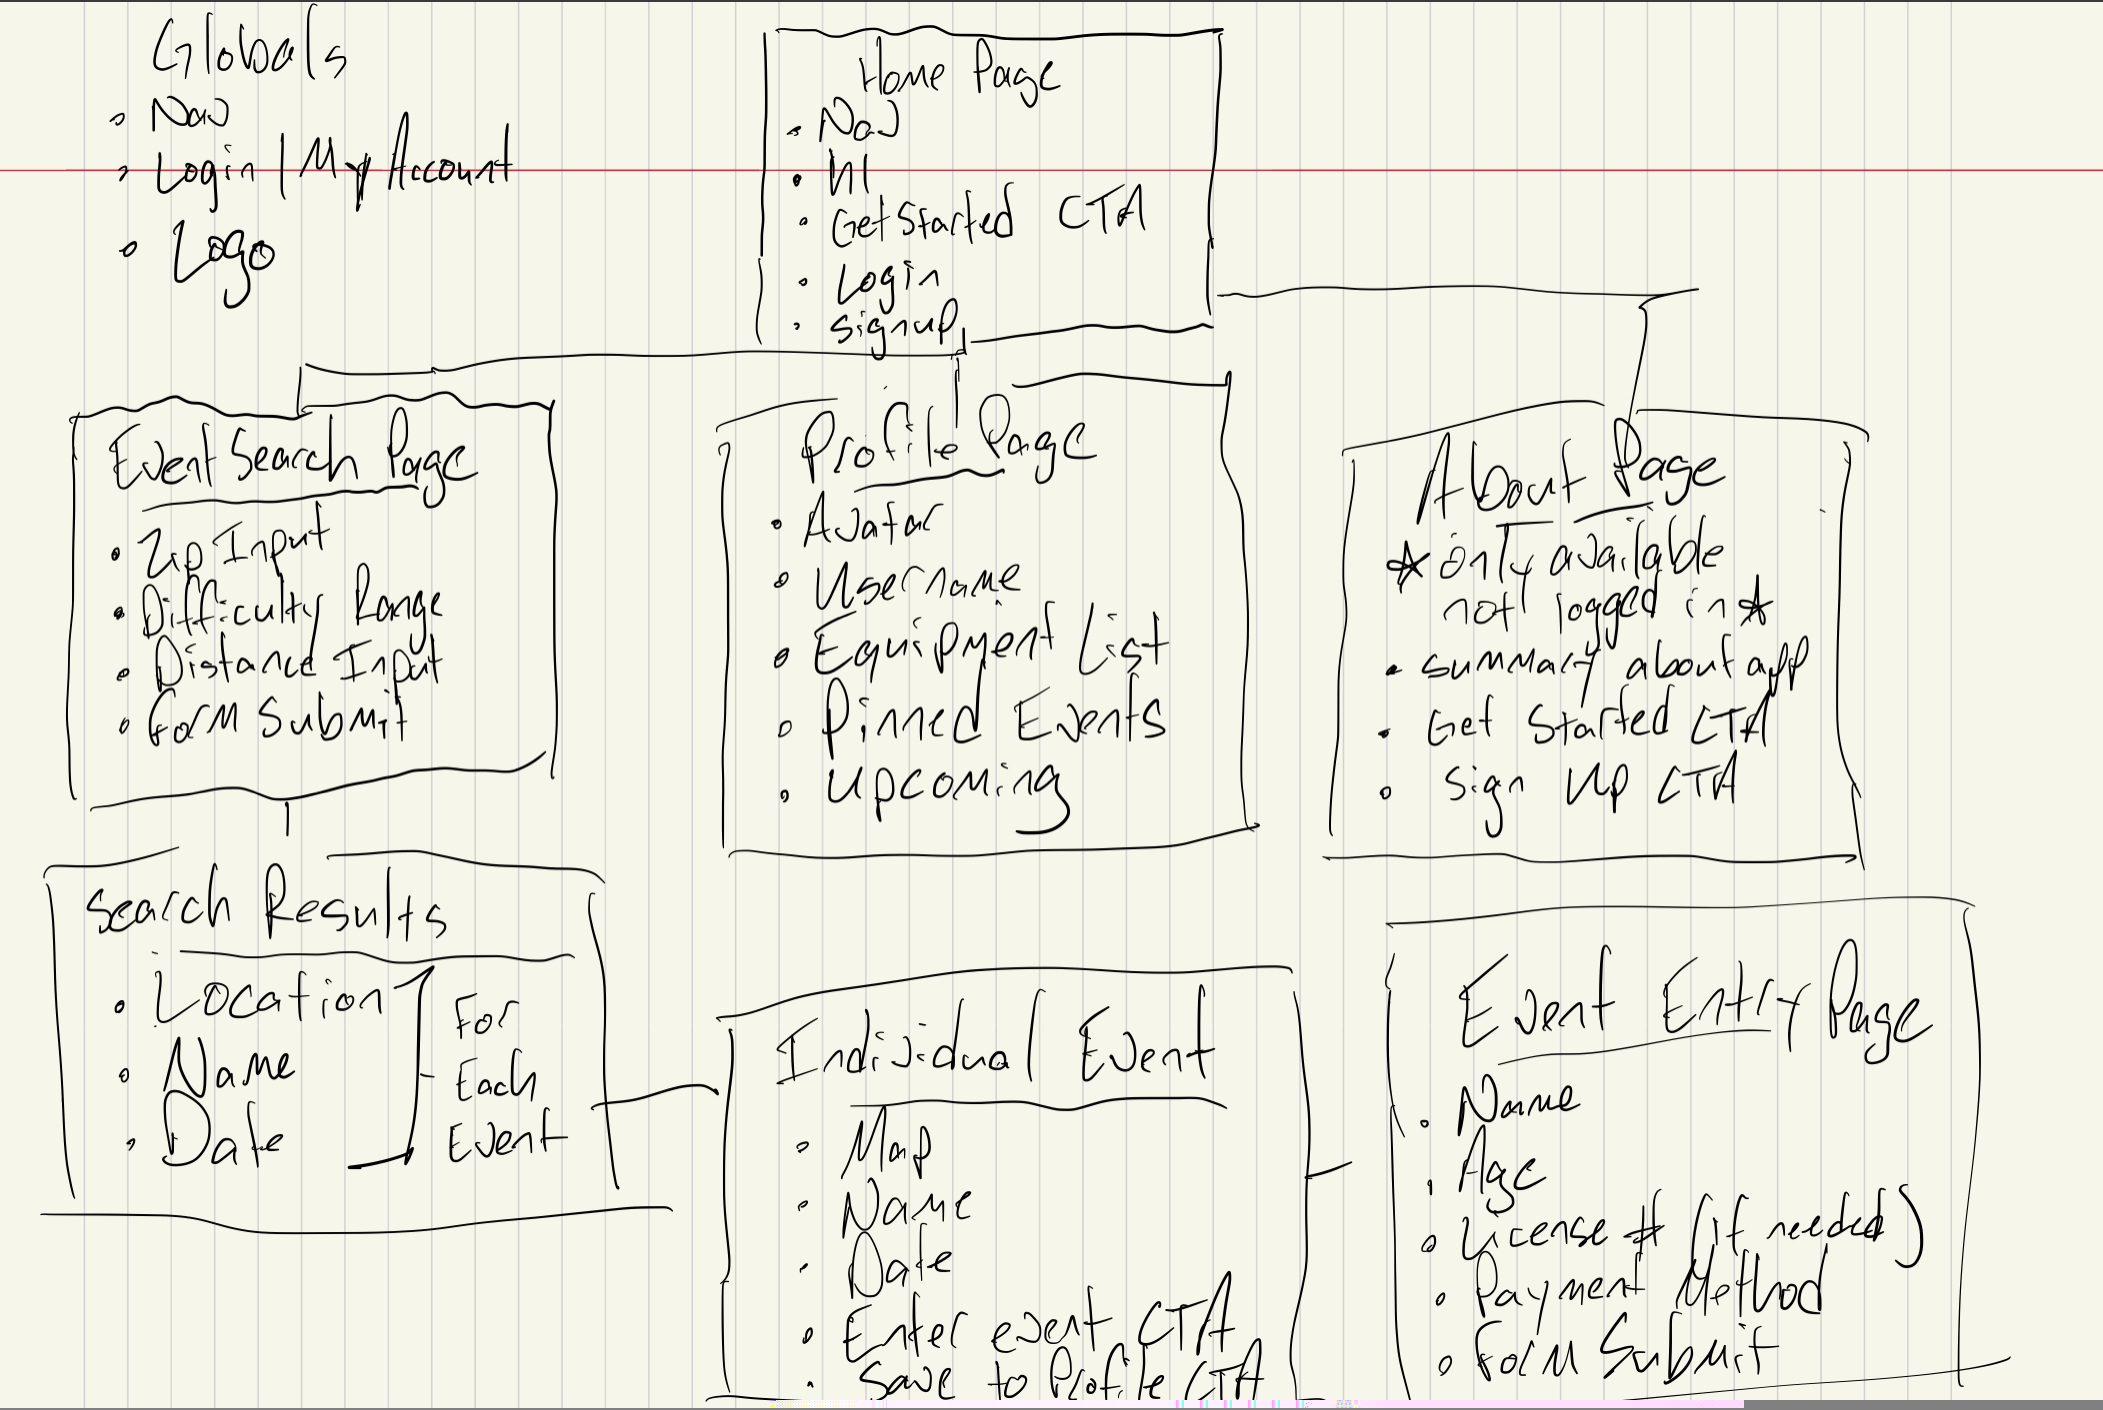 Globals
Nav
Login | My Account
Logo
Home Page
Nav
h1
Get Started CTA
Login
signup
Event Search Page
Zip Input
Difficulty Range
Distance Input
Form Submit
Profile Page
Avatar
Username
Equipment List
Pinned Events
Upcoming
About Page
☆ only available
not logged in ☆
summary about app
Get Started CTA
Sign Up CTA
Search Results
Location
Name
Date
For
Each
Event
Individual Event
Map
Name
Date
Enter event CTA
Save to Profile CTA
Event Entry Page
Name
Age
License # (if needed)
Payment Method
Form Submit